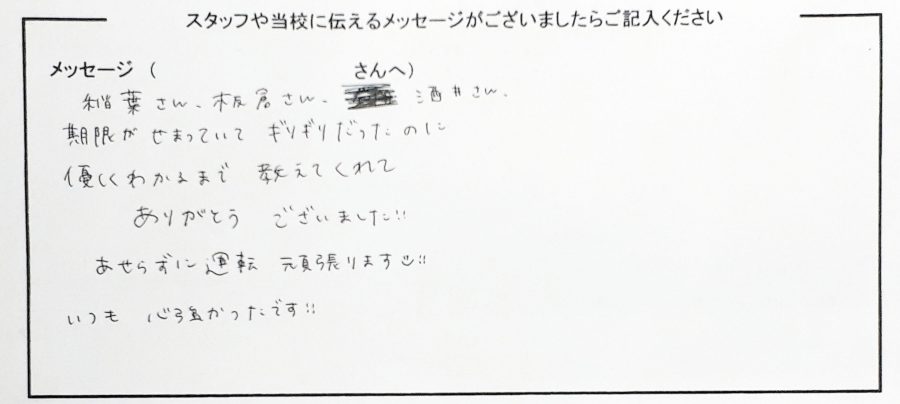 スタッフや当校に伝えるメッセージがございましたらご記入ください
メッセージ ( さんへ)
稲葉さん、板倉さん、酒井さん、
期限がせまっていてギリギリだったのに
優しくわかるまで 教えてくれて
ありがとう ございました!!
あせらずに運転 頑張ります!!
いつも 心強かったです!!